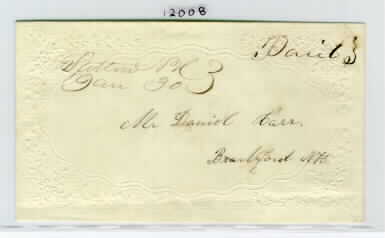 12008
Paid 3
Jan 30 3
Mr Daniel Carr.
Bradford NH.